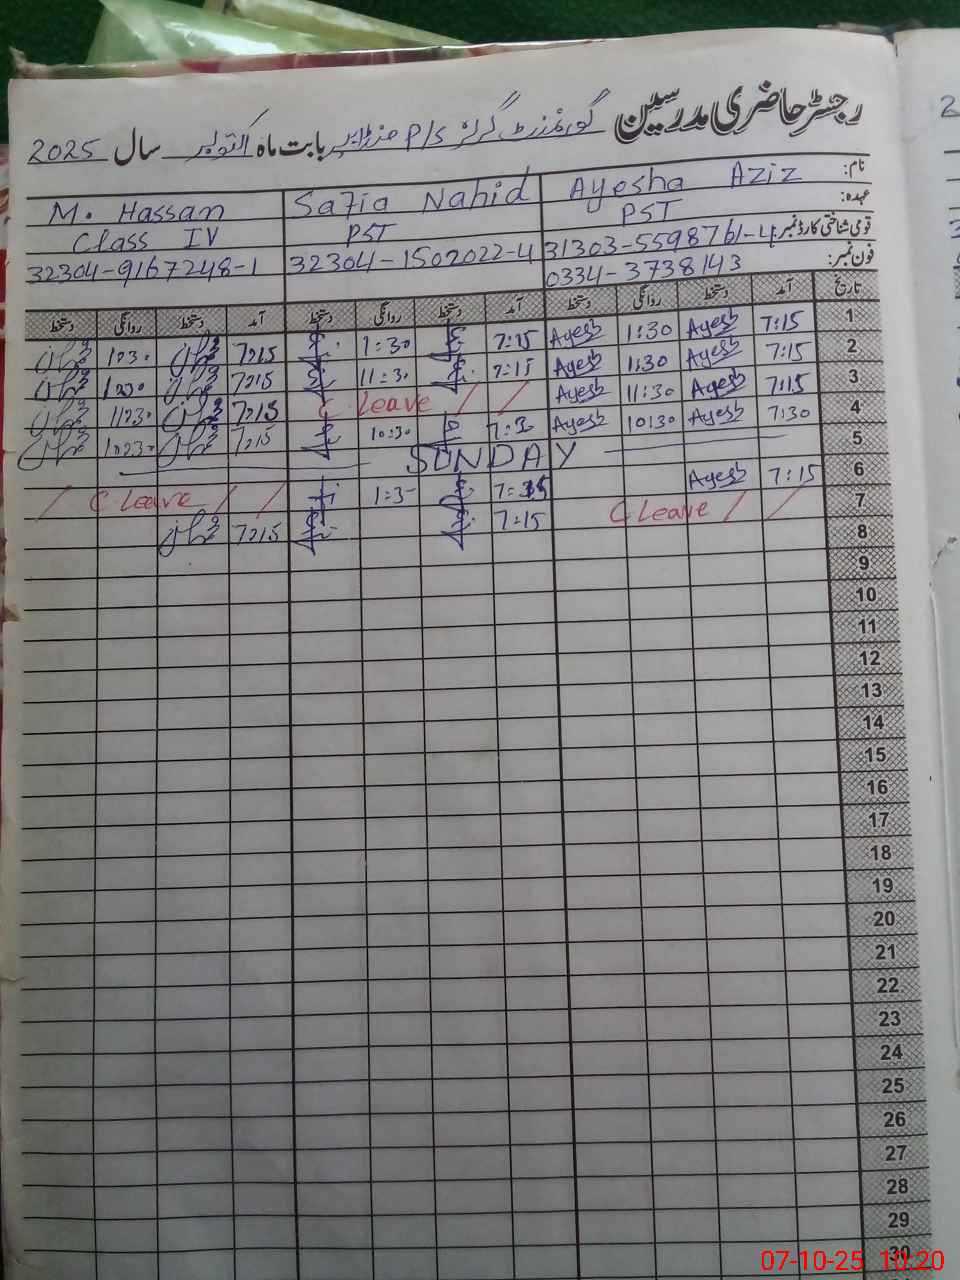 رجسٹر حاضری مدرسین گورنمنٹ گرلز P/S بابت ماہ اکتوبر سال 2025
نام: Ayesha Aziz Safia Nahid M. Hassan
عہدہ: PST PST Class IV
قومی شناختی کارڈ نمبر: 31303-5598761-4 32304-1502022-4 32304-9167248-1
فون نمبر: 0334-3738143
تاریخ آمد دستخط روانگی دستخط آمد دستخط روانگی دستخط آمد دستخط روانگی دستخط
1 7:15 Ayesb 1:30 Ayesb 7:15 1:30 7:15 1:30
2 7:15 Ayesb 1:30 Ayesb 7:15 11:30 7:15 1:30
3 7:15 Ayesb 11:30 Ayesb C leave 7:15 11:30
4 7:30 Ayesb 10:30 Ayesb 7:30 10:30 7:15 10:30
5 SUNDAY
6 7:15 Ayesb 1:3 C leave
7 C leave 7:15 7:15
8
9
10
11
12
13
14
15
16
17
18
19
20
21
22
23
24
25
26
27
28
29
30
07-10-25 10:20